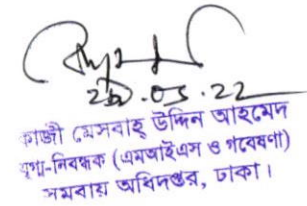 কাজী মেসবাহ্ উদ্দিন আহমেদ
যুগ্ম-নিবন্ধক (এমআইএস ও গবেষণা)
সমবায় অধিদপ্তর, ঢাকা।